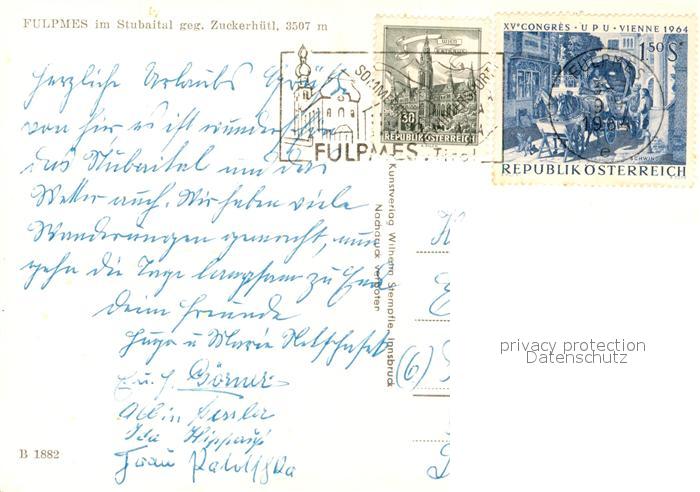 FULPMES im Stubaital geg. Zuckerhütl, 3507 m
WIEN
RATHAUS
30
REPUBLIK ÖSTERREICH
XV CONGRÈS · UPU · VIENNE 1964
1.50 S
SCHWIND
REPUBLIK ÖSTERREICH
FULPMES
FULPMES. Tirol
Herzliche Urlaubs Grüße
von hier es ist wunderschön
das Stubaital und das
Wetter auch. Wir haben viele
Wanderungen gemacht, nun
gehn die Tage langsam zu End
Deine Freunde
Hugo u Marie
Börner
Albin
Ida
Frau
(6)
Kunstverlag Wilhelm Stempfle, Innsbruck
Nachdruck verboten
B 1882
privacy protection
Datenschutz